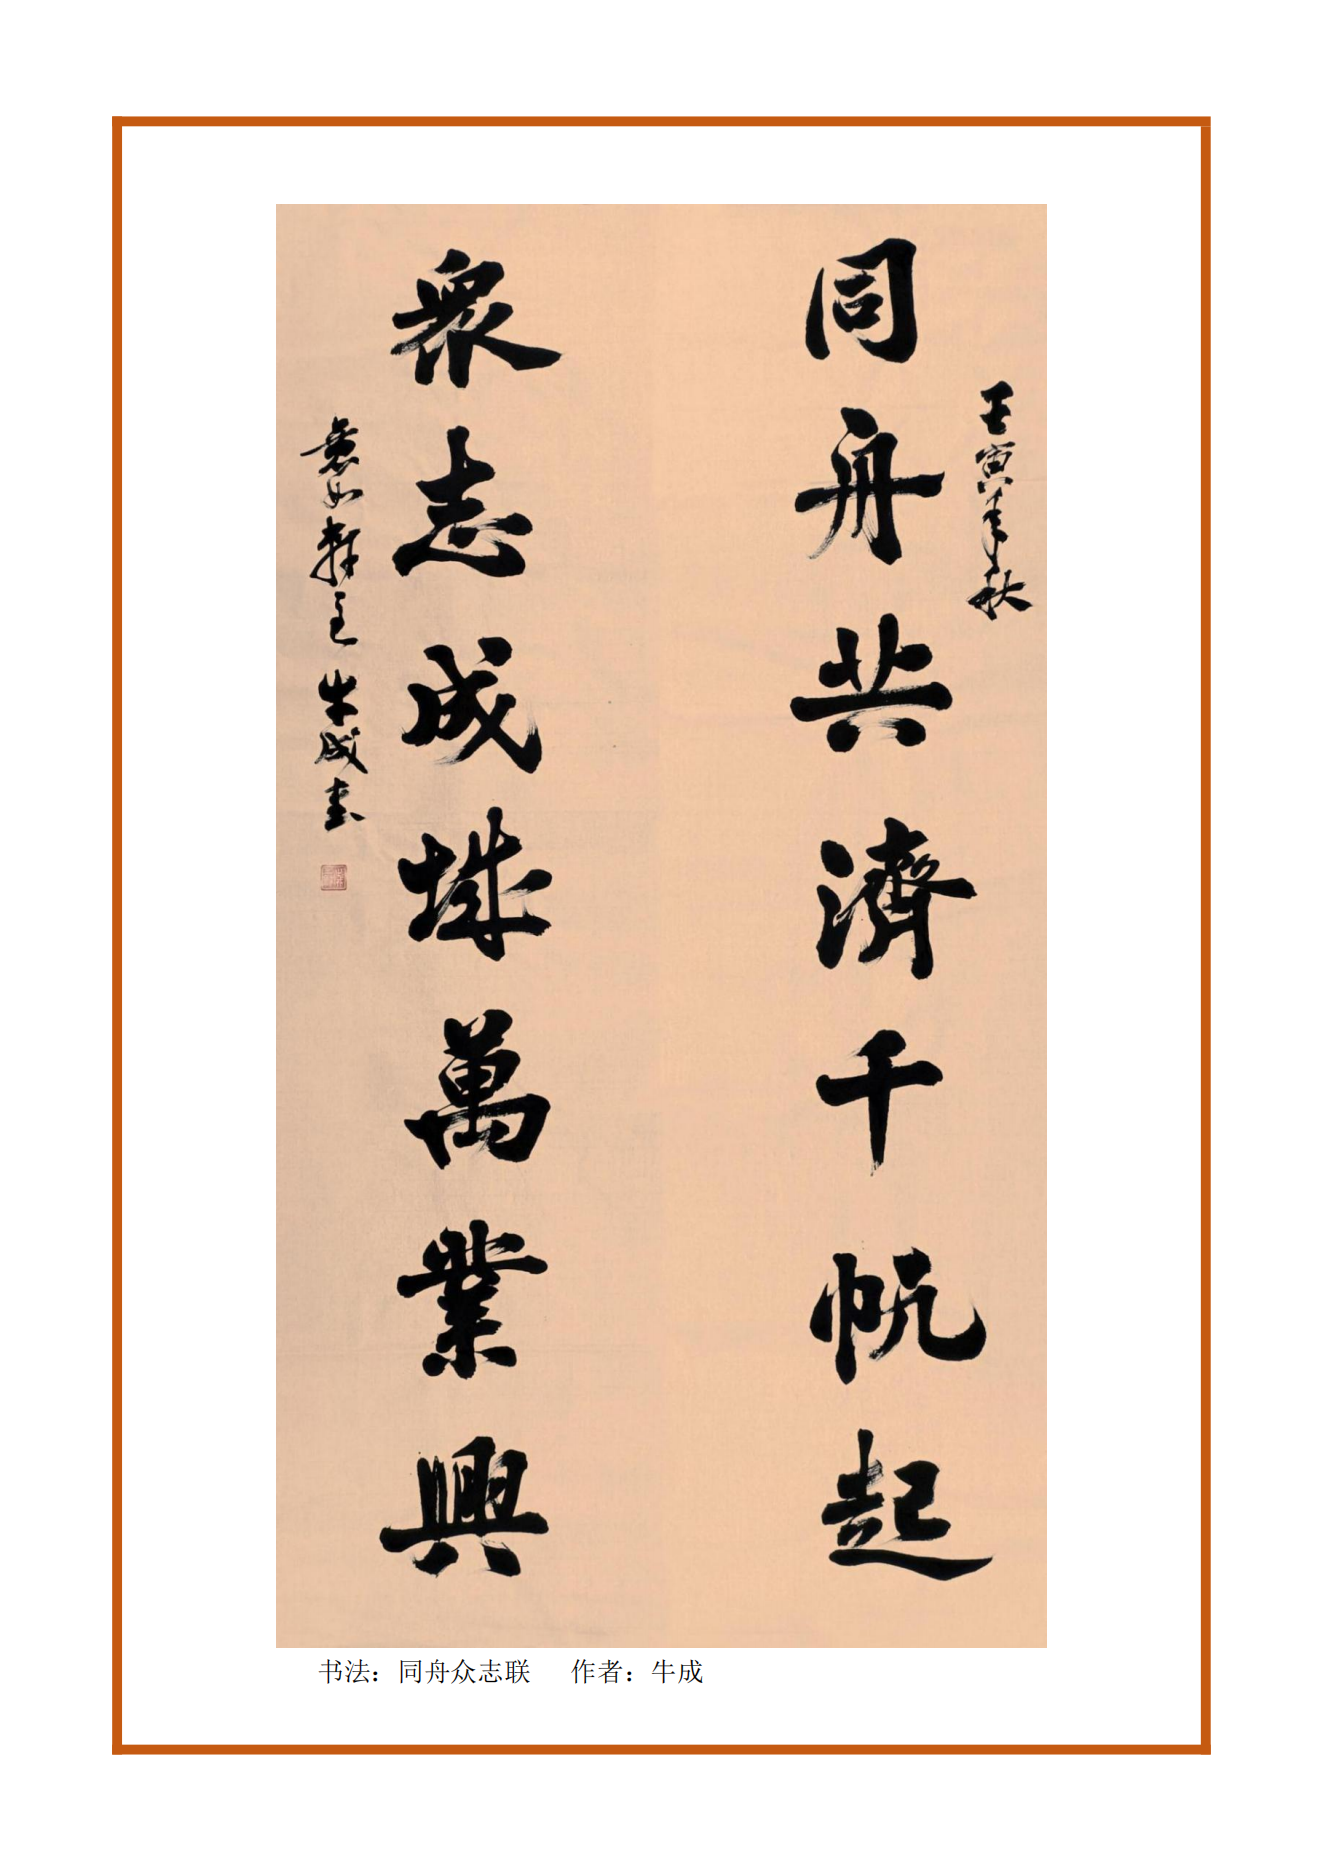 壬寅年秋
同舟共濟千帆起
衆志成城萬業興
如軒主 牛成書
书法：同舟众志联 作者：牛成